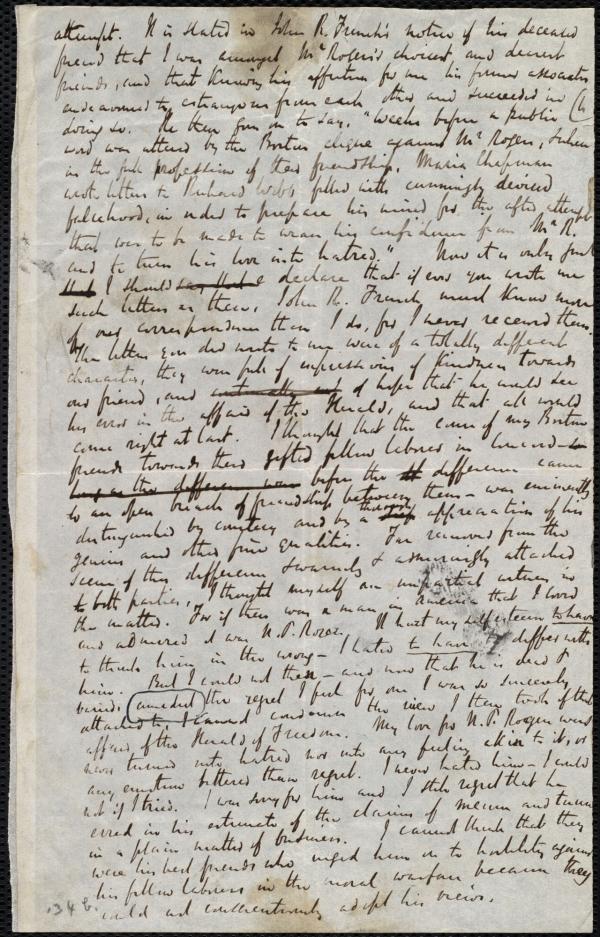 attempt. It is stated in John R. French's notice of his deceased
friend that I was amongst Mr Rogers's choicest and dearest
friends, and that knowing his affection for me his former associates
endeavoured to estrange us from each other and succeeded in
doing so. He then goes on to say, "Weeks before a public
word was uttered by the Boston clique against Mr Rogers, & when
in the full profession of their friendship, Maria Chapman
wrote letters to Richard Webb filled with cunningly devised
falsehood, in order to prepare his mind for the after attempt
that was to be made to wean his confidence from Mr R.
and to turn his love into hatred." Now it is only just
that I should say that I declare that if ever you wrote me
such letters as these, John R. French must know more
of our correspondence than I do, for I never received them.
The letters you did write to me were of a totally different
character, they were full of expressions of kindness towards
our friend, and of hope that he would see
his error in the affair of the Herald, and that all would
come right at last. I thought that the course of my Boston
friends towards their gifted fellow laborer in
long as the difference were before the difference came
to an open breach of friendship between them - was eminently
distinguished by courtesy and by a thorough appreciation of his
genius and other fine qualities. Far removed from the
scene of this difference & warmly & admiringly attached
to both parties, I thought myself an impartial witness in
the matter. For if there was a man in America that I loved
and admired it was N. P. Rogers. It hurt my self esteem to have
to think him in the wrong - I hated to have to differ with
him. But I could not then - and now that he is dead &
buried, amidst the regret I feel for one I was so sincerely
attached to, I cannot condemn the view I then took of the
affair of the Herald of Freedom. My love for N. P. Rogers was
never turned into hatred nor into any feeling akin to it, or
any emotion bitterer than regret. I never hated him - I could
not if I tried. I was sorry for him and I still regret that he
erred in his estimate of the claims of meum and tuum
in a plain matter of business. I cannot think that they
were his best friends who urged him on to hostility against
his fellow laborers in the moral warfare because they
could not conscientiously adopt his views.